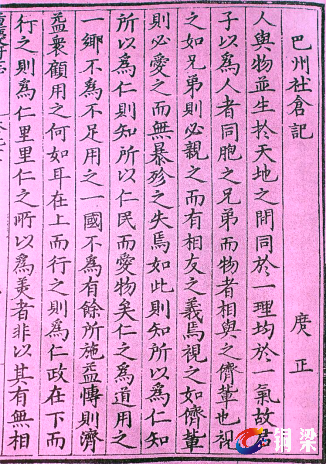 巴州社倉記
度正
人與物並生於天地之間同於一理均於一氣故君
子以為人者同胞之兄弟而物者相與之儕輩也視
之如兄弟則必親之而有相友之義焉視之如儕輩
則必愛之而無暴殄之失焉如此則知所以為仁知
所以為仁則知所以仁民而愛物矣仁之為道用之
一鄉不為不足用之一國不為有餘所施益博則濟
益衆顧用之何如耳在上而行之則為仁政在下而
行之則為仁里里仁之所以為美者非以其有無相
铜梁